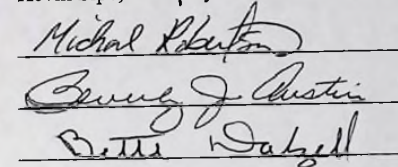 Michael Robertson
Beverly J. Austin
Bette Dalzell